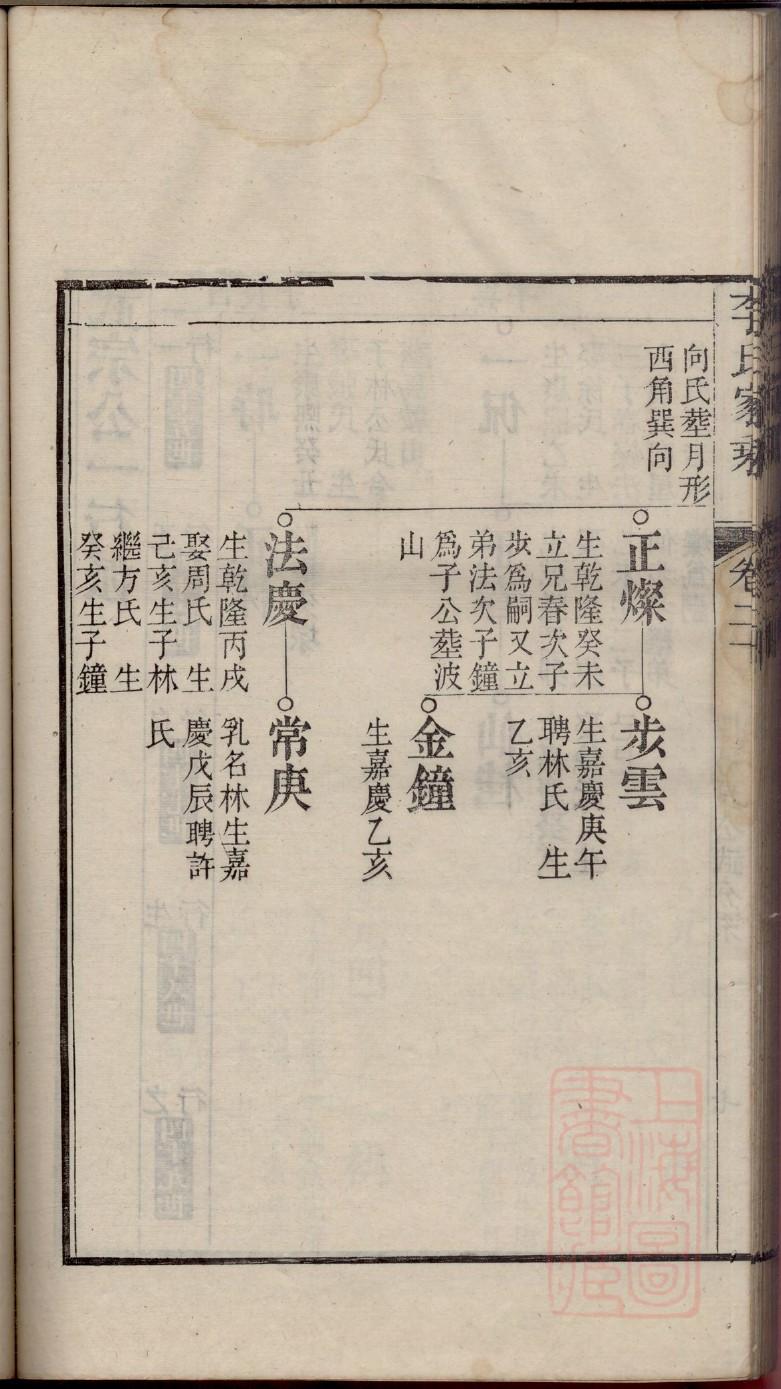 李氏家乘
卷二
向氏塟月形
西角巽向
正燦
生乾隆癸未
立兄春次子
步爲嗣又立
弟法次子鐘
爲子公塟波
山
步雲
生嘉慶庚午
聘林氏 生
乙亥
金鐘
生嘉慶乙亥
法慶
生乾隆丙戌
娶周氏 生
己亥生子林
繼方氏 生
癸亥生子鐘
常庚
乳名林生嘉
慶戊辰聘許
氏
上海圖
書館藏